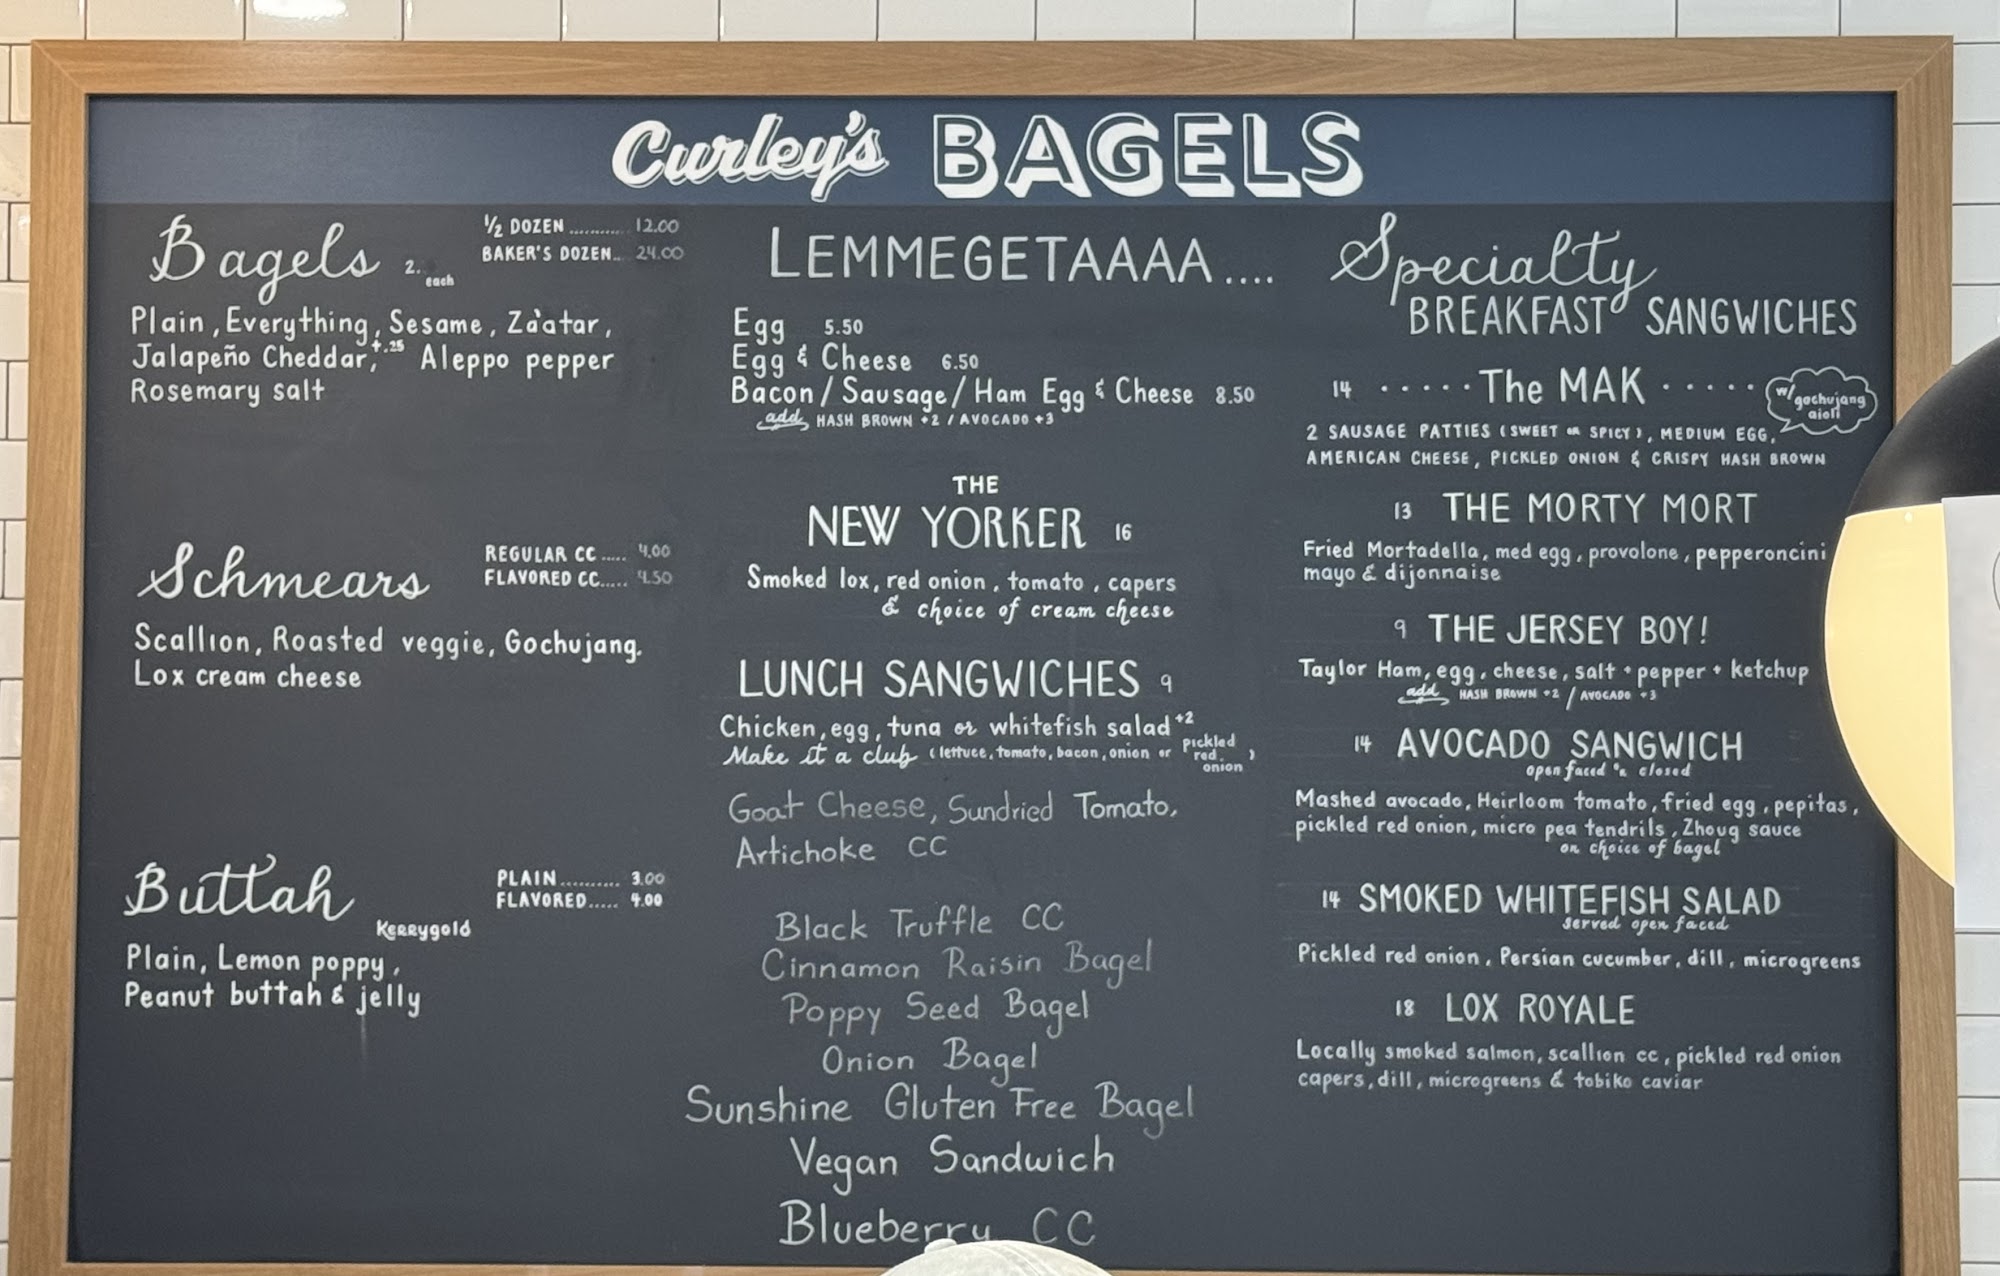 Curley's BAGELS
Bagels 2. each
1/2 DOZEN ........... 12.00
BAKER'S DOZEN.. 24.00
Plain, Everything, Sesame, Za'atar,
Jalapeño Cheddar, +.25 Aleppo pepper
Rosemary salt
Schmears
REGULAR CC ..... 4.00
FLAVORED CC..... 4.50
Scallion, Roasted veggie, Gochujang.
Lox cream cheese
Buttah
Kerrygold
PLAIN.......... 3.00
FLAVORED..... 4.00
Plain, Lemon poppy,
Peanut buttah & jelly
LEMMEGETAAAA....
Egg 5.50
Egg & Cheese 6.50
Bacon/Sausage/Ham Egg & Cheese 8.50
add HASH BROWN +2 / AVOCADO +3
THE
NEW YORKER 16
Smoked lox, red onion, tomato, capers
& choice of cream cheese
LUNCH SANGWICHES 9
Chicken, egg, tuna or whitefish salad +2
Make it a club (lettuce, tomato, bacon, onion or pickled red onion)
Goat Cheese, Sundried Tomato,
Artichoke CC
Black Truffle CC
Cinnamon Raisin Bagel
Poppy Seed Bagel
Onion Bagel
Sunshine Gluten Free Bagel
Vegan Sandwich
Blueberry CC
Specialty
BREAKFAST SANGWICHES
14 ..... The MAK .....
w/ gochujang aioli
2 SAUSAGE PATTIES (SWEET OR SPICY), MEDIUM EGG,
AMERICAN CHEESE, PICKLED ONION & CRISPY HASH BROWN
13 THE MORTY MORT
Fried Mortadella, med egg, provolone, pepperoncini
mayo & dijonnaise
9 THE JERSEY BOY!
Taylor Ham, egg, cheese, salt + pepper + ketchup
add HASH BROWN +2 / AVOCADO +3
14 AVOCADO SANGWICH
open faced or closed
Mashed avocado, Heirloom tomato, fried egg, pepitas,
pickled red onion, micro pea tendrils, Zhoug sauce
on choice of bagel
14 SMOKED WHITEFISH SALAD
served open faced
Pickled red onion, Persian cucumber, dill, microgreens
18 LOX ROYALE
Locally smoked salmon, scallion cc, pickled red onion
capers, dill, microgreens & tobiko caviar